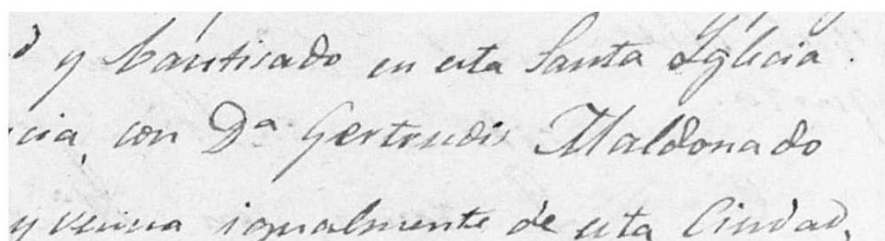 y bautisado en esta Santa Iglecia.
cia, con Dª Gertrudis Maldonado
y vecina igualmente de esta Ciudad,